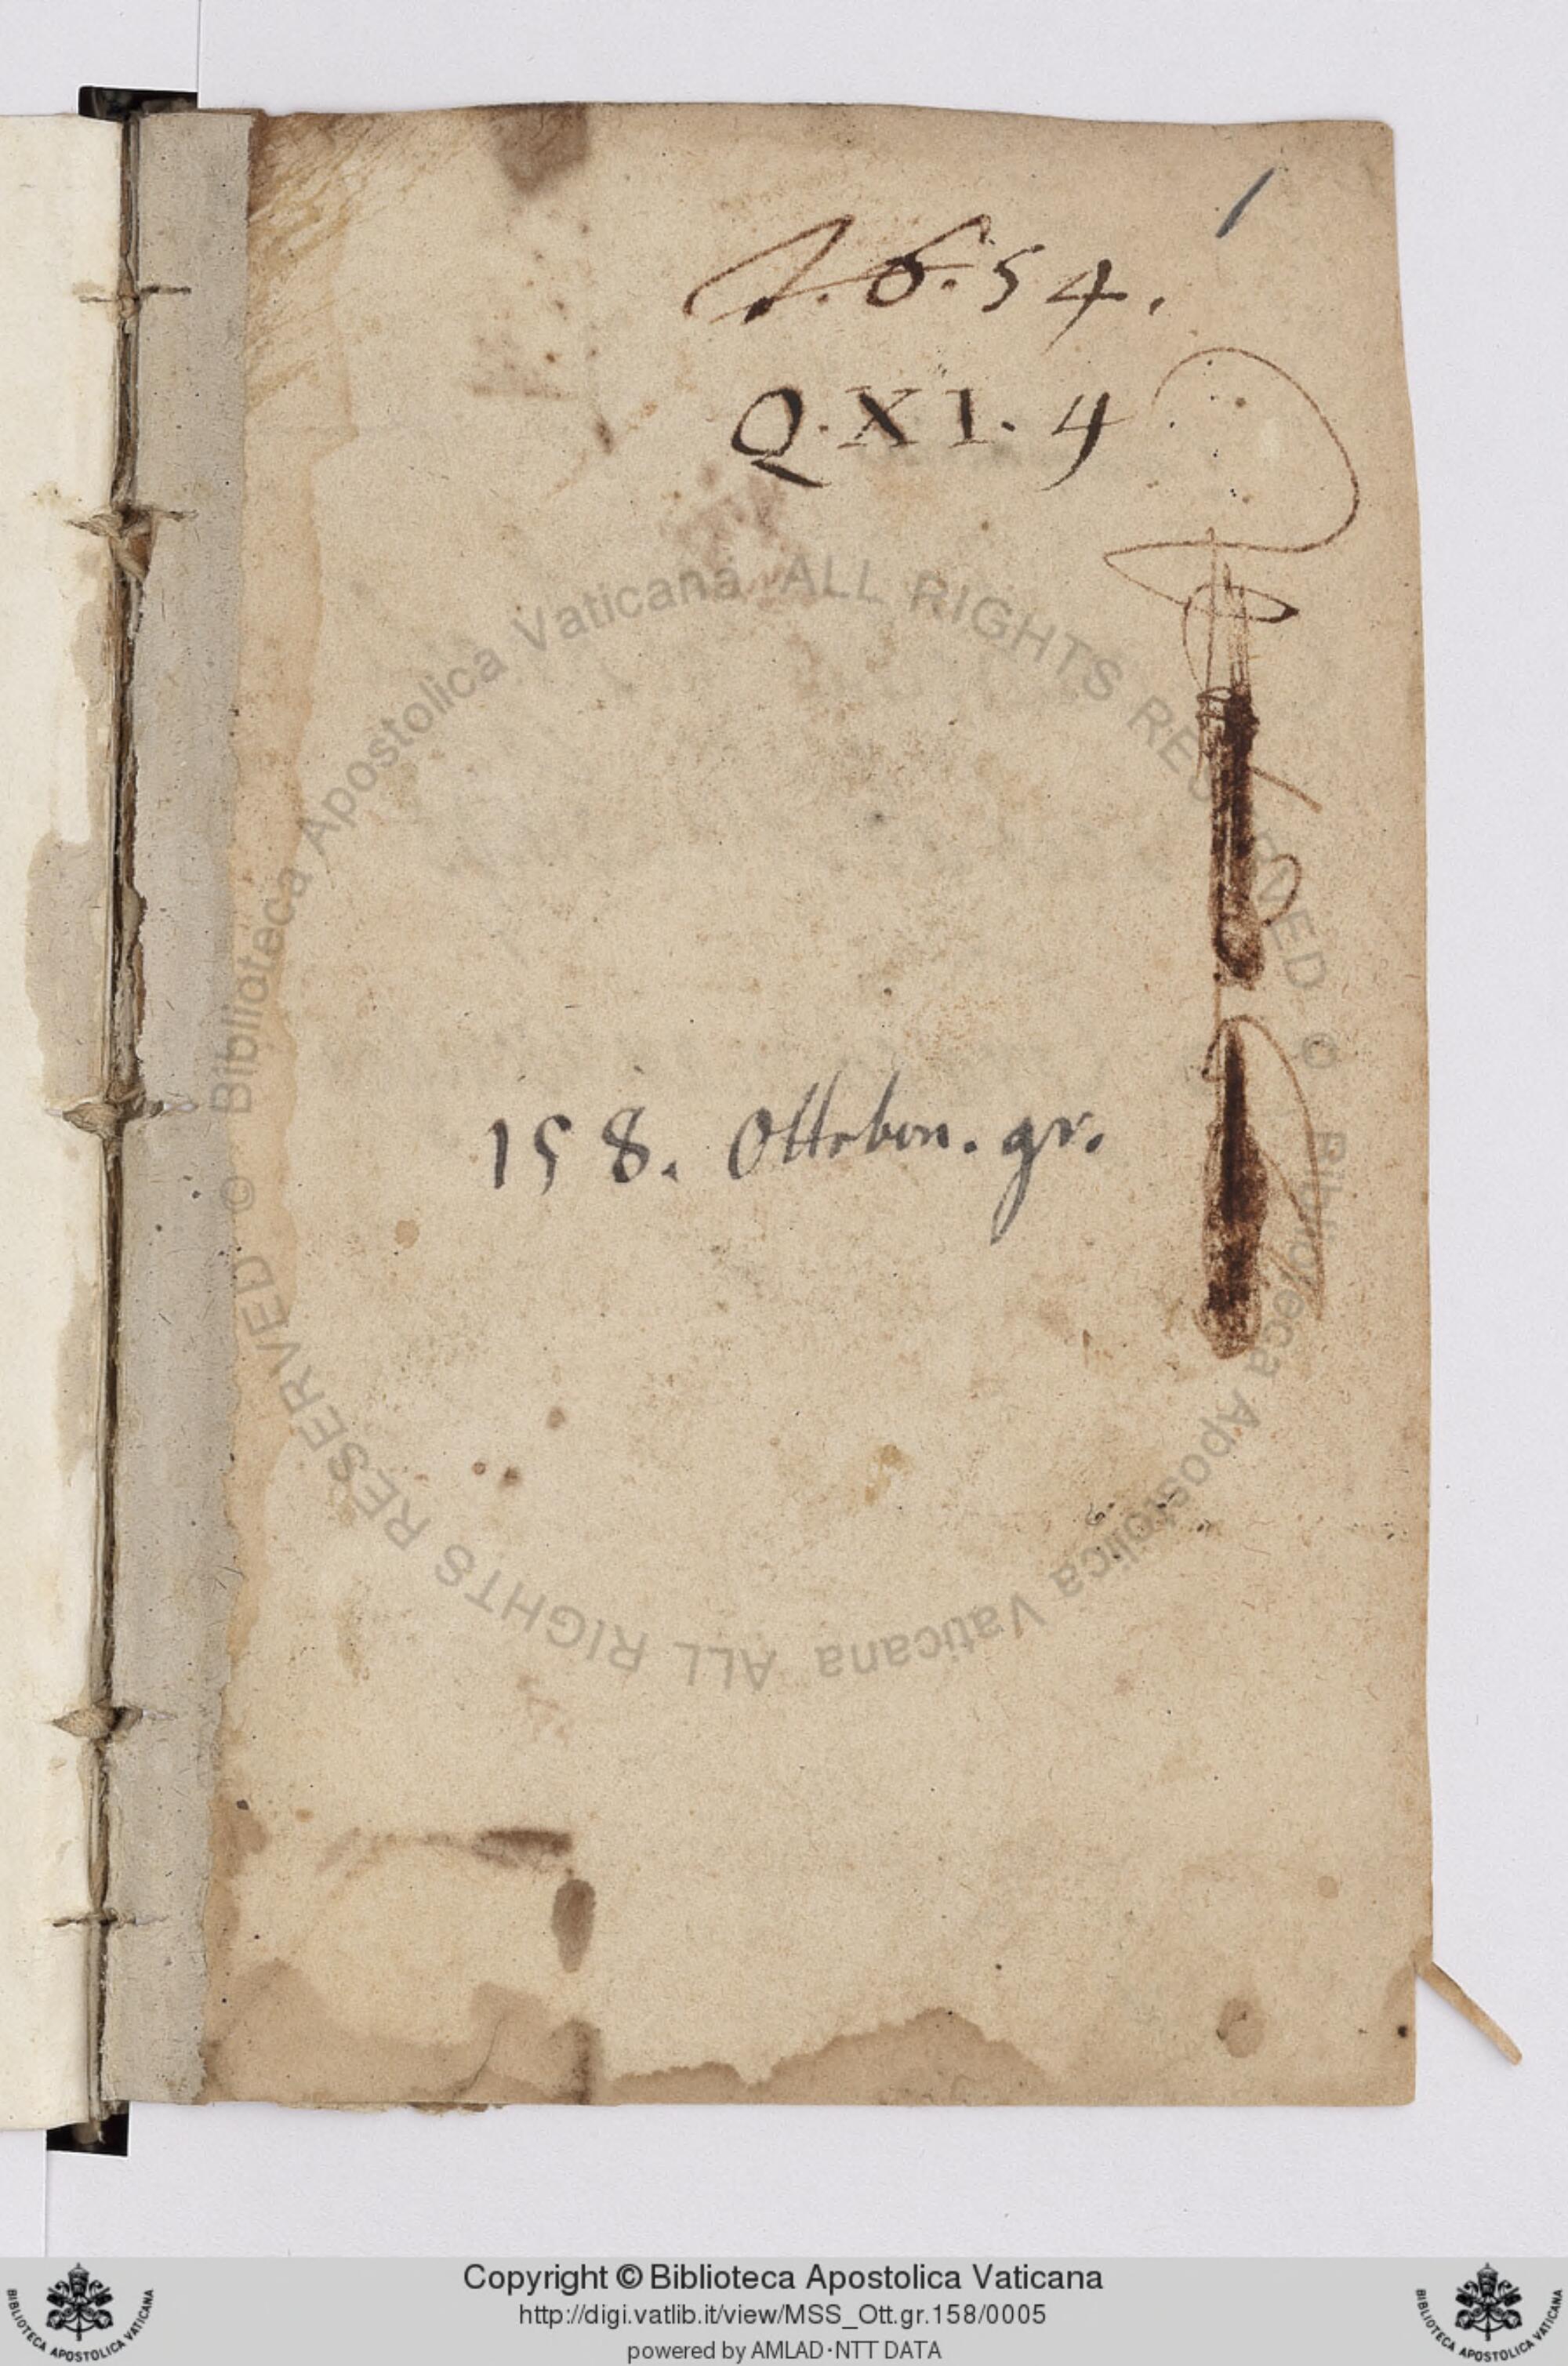 1
1.6.54.
Q.XI.4
158. Ottobon. gr.
Biblioteca Apostolica Vaticana ALL RIGHTS RESERVED ©
Biblioteca Apostolica Vaticana ALL RIGHTS RESERVED ©
Copyright © Biblioteca Apostolica Vaticana
http://digi.vatlib.it/view/MSS_Ott.gr.158/0005
powered by AMLAD·NTT DATA
BIBLIOTECA APOSTOLICA VATICANA
BIBLIOTECA APOSTOLICA VATICANA